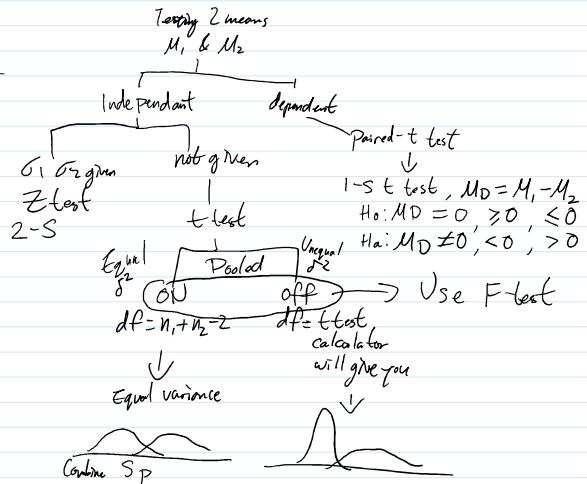 Testing 2 means
μ₁ & μ₂
Independant
dependent
σ₁ σ₂ given
Z test
2-S
not given
t test
Paired-t test
1-S t test, μD = μ₁ - μ₂
Ho: μD = 0, ≥0, ≤0
Ha: μD ≠ 0, <0, >0
Equal
σ²
Pooled
Unequal
σ²
ON
off
Use F-test
df = n₁ + n₂ - 2
df = t test,
calculator
will give you
Equal variance
Combine Sp